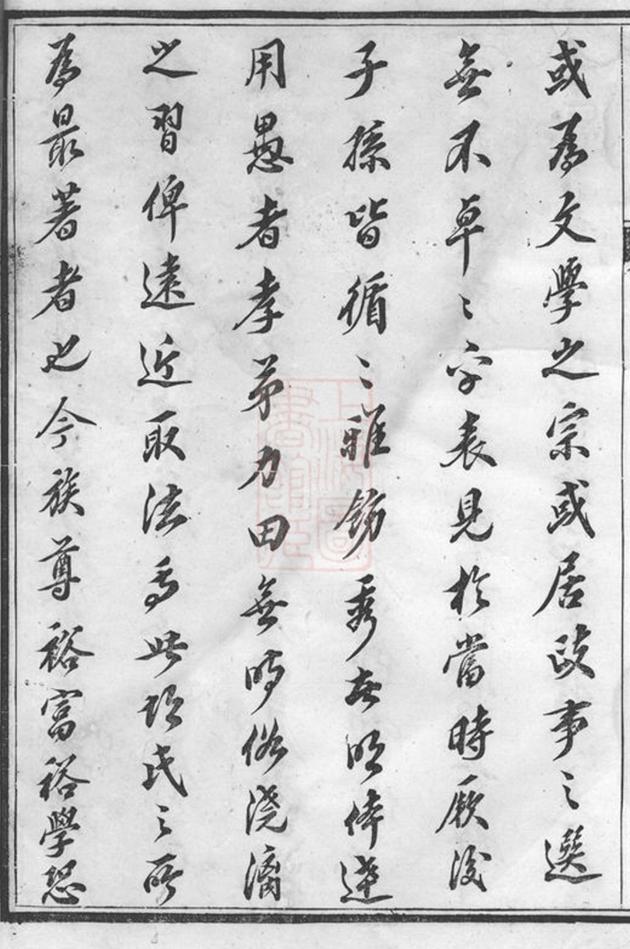 或為文學之宗或居政事之選
無不卓〻乎表見於當時厥後
子孫皆循〻雅飭秀者明体達
用愚者孝弟力田無時俗澆漓
之習俾遠近取法焉此項氏之所
為最著者也今族尊裕富裕學恐
上海圖書館藏